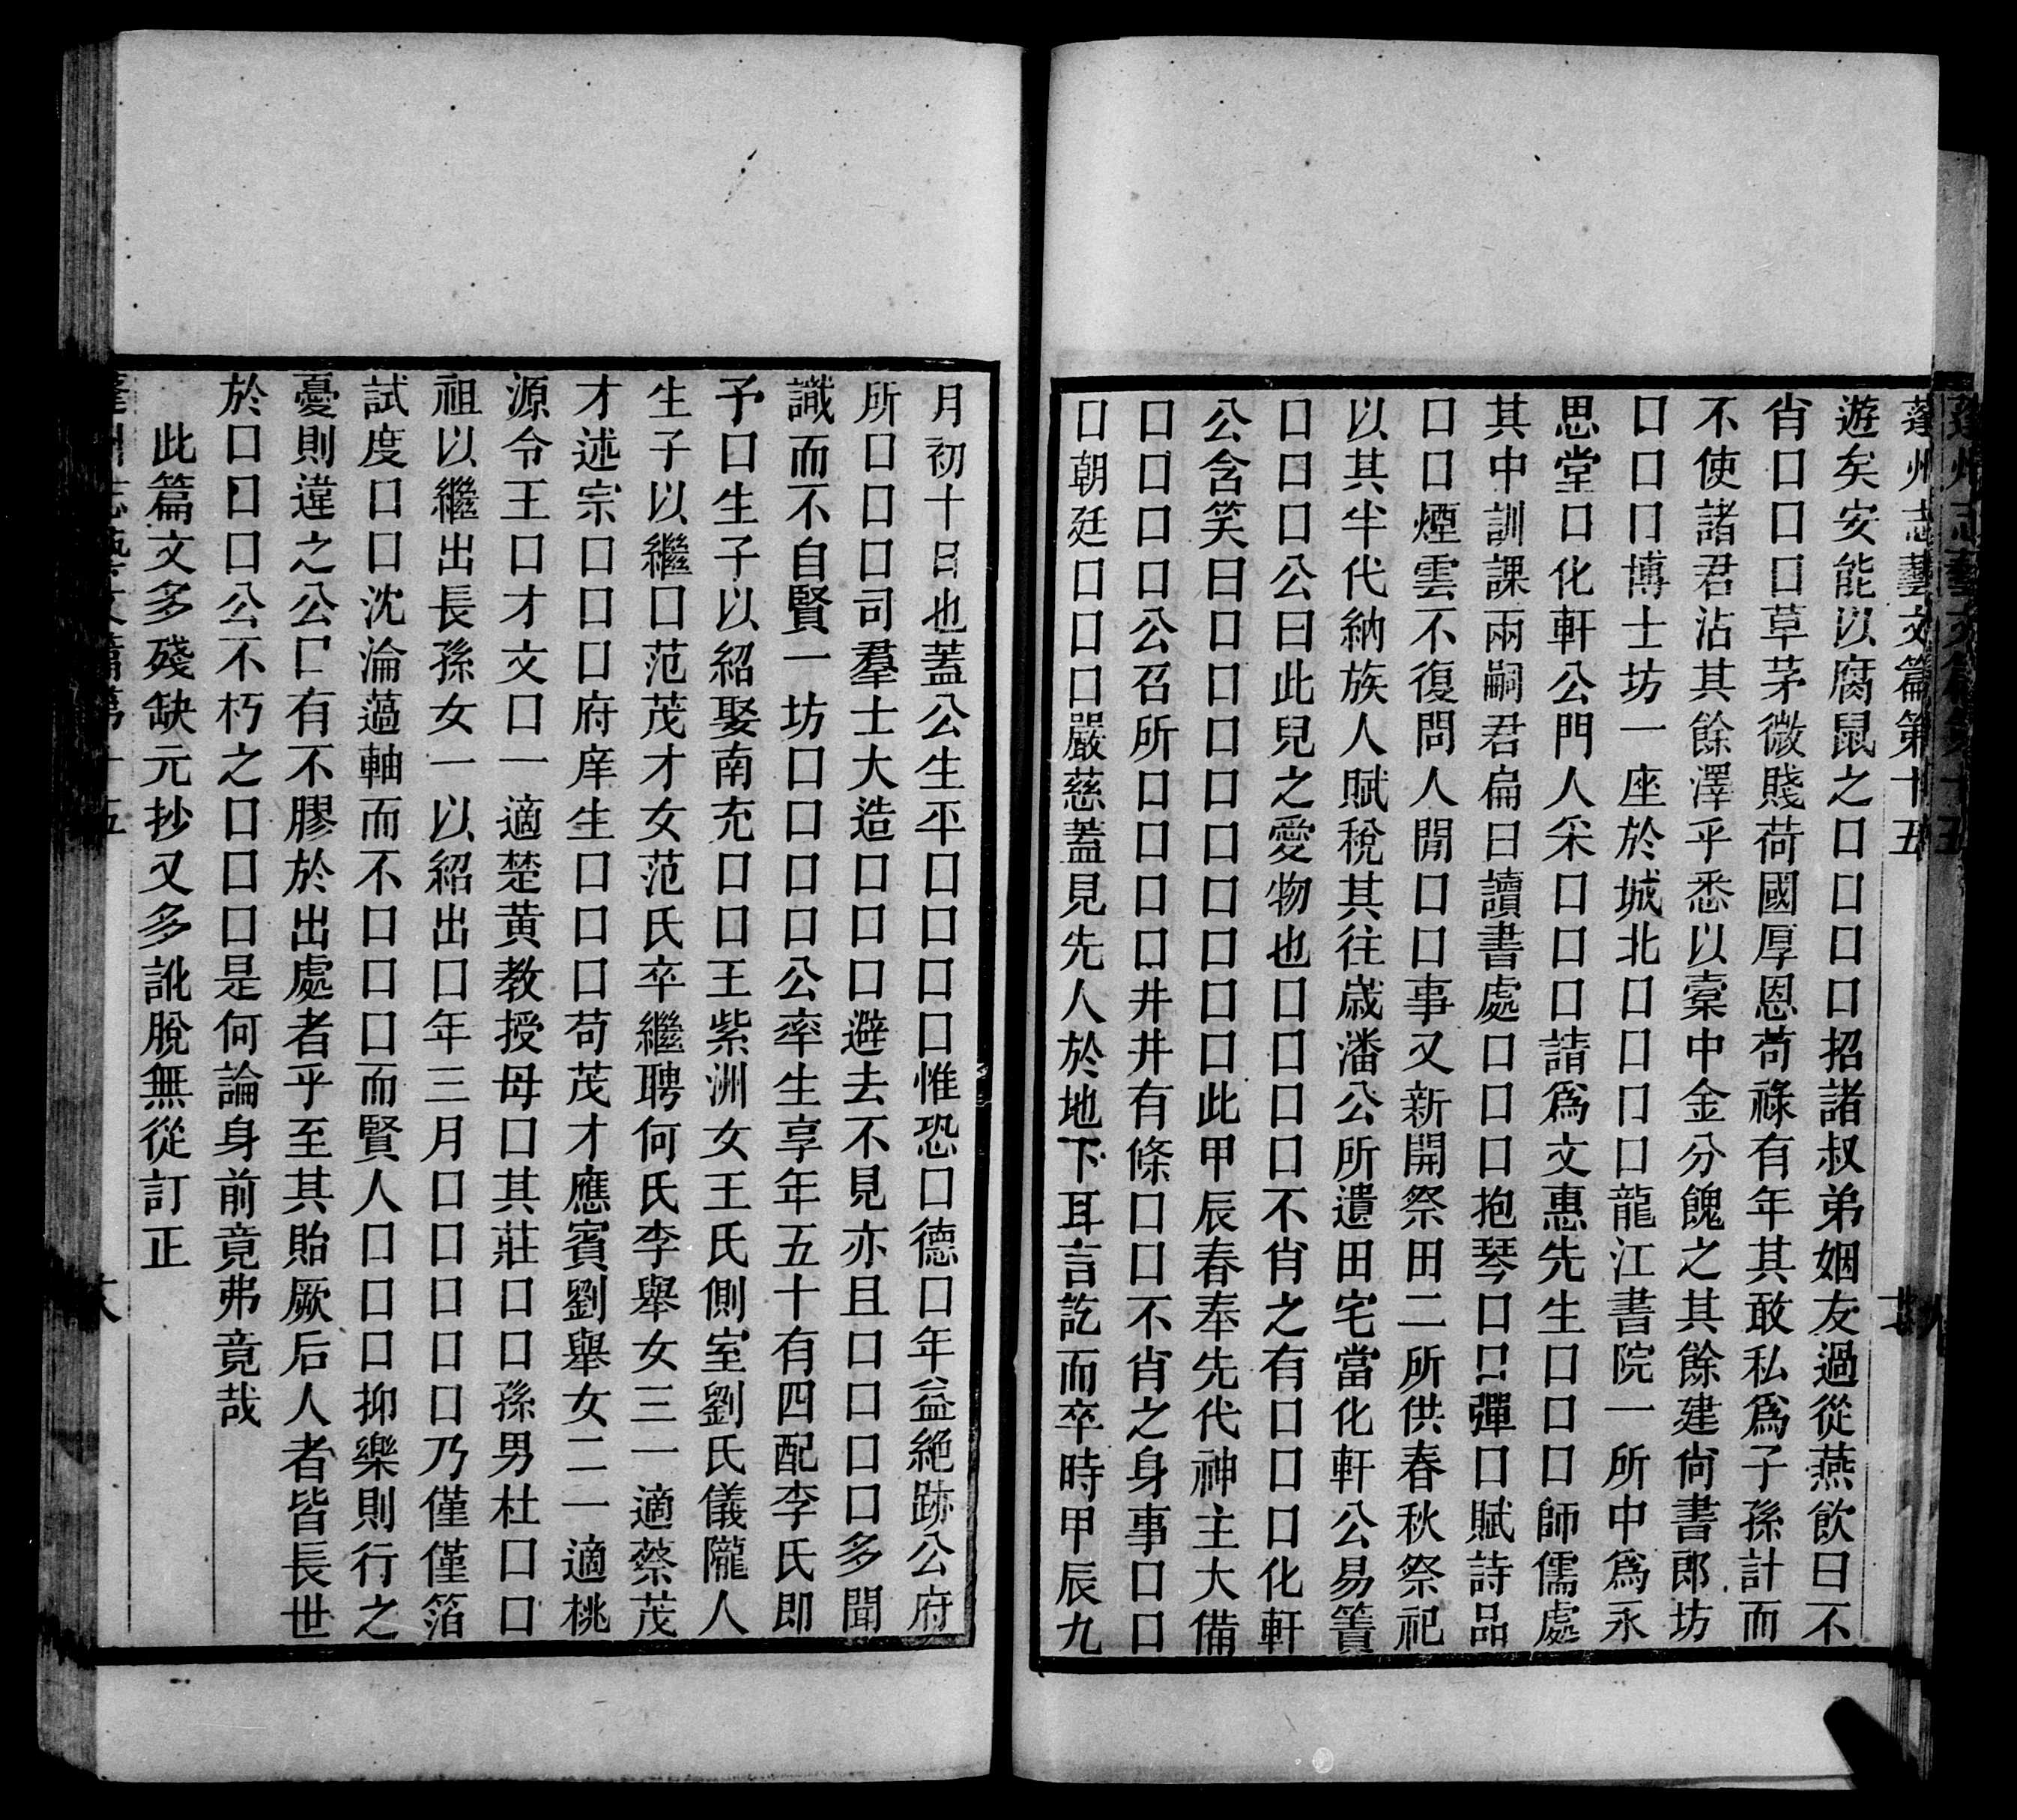 蓬州志藝文篇第十五
遊矣安能以腐鼠之口口口口招諸叔弟姻友過從燕飲曰不
肖口口口草茅微賤荷國厚恩苟祿有年其敢私爲子孫計而
不使諸君沾其餘澤乎悉以槖中金分餽之其餘建尙書郎坊
口口口博士坊一座於城北口口口口龍江書院一所中爲永
思堂口化軒公門人采口口口請爲文惠先生口口口師儒處
其中訓課兩嗣君扁曰讀書處口口口抱琴口口彈口賦詩品
口口煙雲不復問人閒口口事又新開祭田二所供春秋祭祀
以其半代納族人賦稅其往歲潘公所遺田宅當化軒公易簀
口口口公曰此兒之愛物也口口口口不肖之有口口口化軒
公含笑曰口口口口口口口口此甲辰春奉先代神主大備
口口口口公召所口口口口井井有條口口不肖之身事口口
口朝廷口口口嚴慈蓋見先人於地下耳言訖而卒時甲辰九
月初十日也蓋公生平口口口口惟恐口德口年益絶跡公府
所口口口司羣士大造口口口避去不見亦且口口口口多聞
識而不自賢一坊口口口口公率生享年五十有四配李氏卽
予口生子以紹娶南充口口王紫洲女王氏側室劉氏儀隴人
生子以繼口范茂才女范氏卒繼聘何氏李舉女三一適蔡茂
才述宗口口口府庠生口口口苟茂才應賓劉舉女二一適桃
源令王口才文口一適楚黄教授母口其莊口口孫男杜口口
祖以繼出長孫女一以紹出口年三月口口口口口乃僅僅箔
試度口口沈淪薖軸而不口口口而賢人口口口抑樂則行之
憂則違之公口有不膠於出處者乎至其貽厥后人者皆長世
於口口口公不朽之口口口是何論身前竟弗竟哉
此篇文多殘缺元抄又多訛脫無從訂正